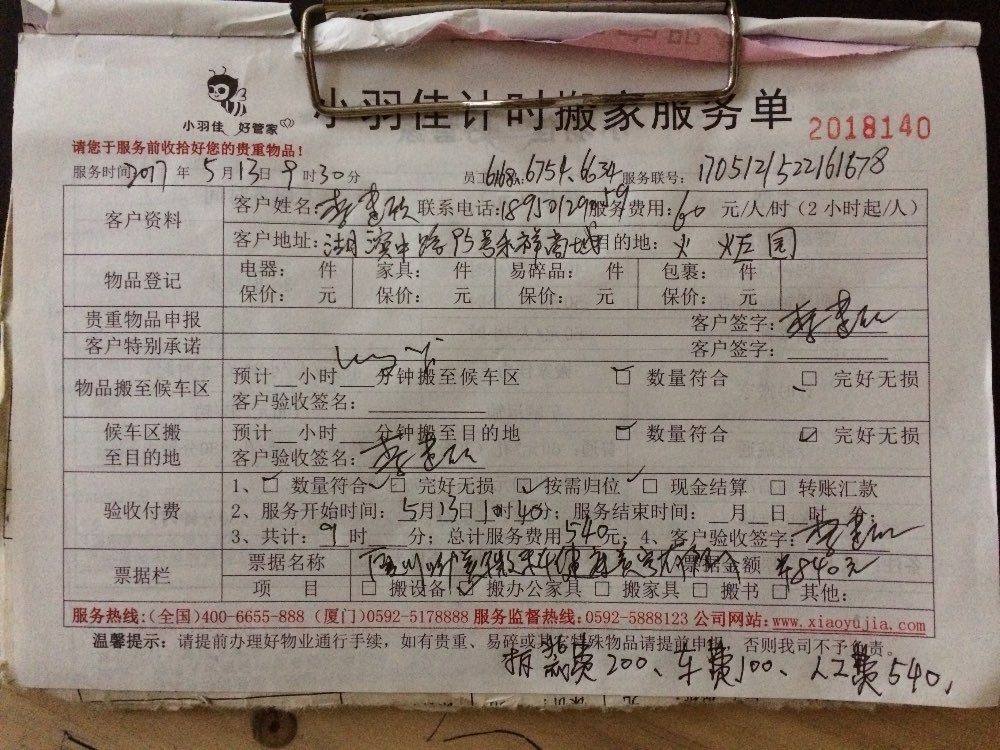 小羽佳 好管家
小羽佳计时搬家服务单
2018140
请您于服务前收拾好您的贵重物品!
服务时间2017年5月13日9时30分 员工 6168、6751、6634 服务联号: 1705121522161678
客户资料
客户姓名: 联系电话: 服务费用: 60 元/人/时 (2小时起/人)
客户地址: 湖滨中路95号禾祥商城 目的地: 火炬园
物品登记
电器: 件 家具: 件 易碎品: 件 包裹: 件
保价: 元 保价: 元 保价: 元 保价: 元
贵重物品申报 客户签字:
客户特别承诺 客户签字:
物品搬至候车区
预计__小时__分钟搬至候车区 □ 数量符合 □ 完好无损
客户验收签名:
候车区搬至目的地
预计__小时__分钟搬至目的地 □ 数量符合 ☑ 完好无损
客户验收签名:
验收付费
1、□ 数量符合 □ 完好无损 □ 按需归位 □ 现金结算 □ 转账汇款
2、服务开始时间: 5月13日10时40分; 服务结束时间: __月__日__时__分;
3、共计: 9时__分; 总计服务费用540元; 4、客户验收签字:
票据栏
票据名称 票据金额 ¥840元
项 目 □ 搬设备 □ 搬办公家具 □ 搬家具 □ 搬书 □ 其他:
服务热线:(全国)400-6655-888 (厦门)0592-5178888 服务监督热线:0592-5888123 公司网站:www.xiaoyujia.com
温馨提示: 请提前办理好物业通行手续, 如有贵重、易碎或其它特殊物品请提前申报, 否则我司不予负责。
拆装费200、车费100、人工费540,